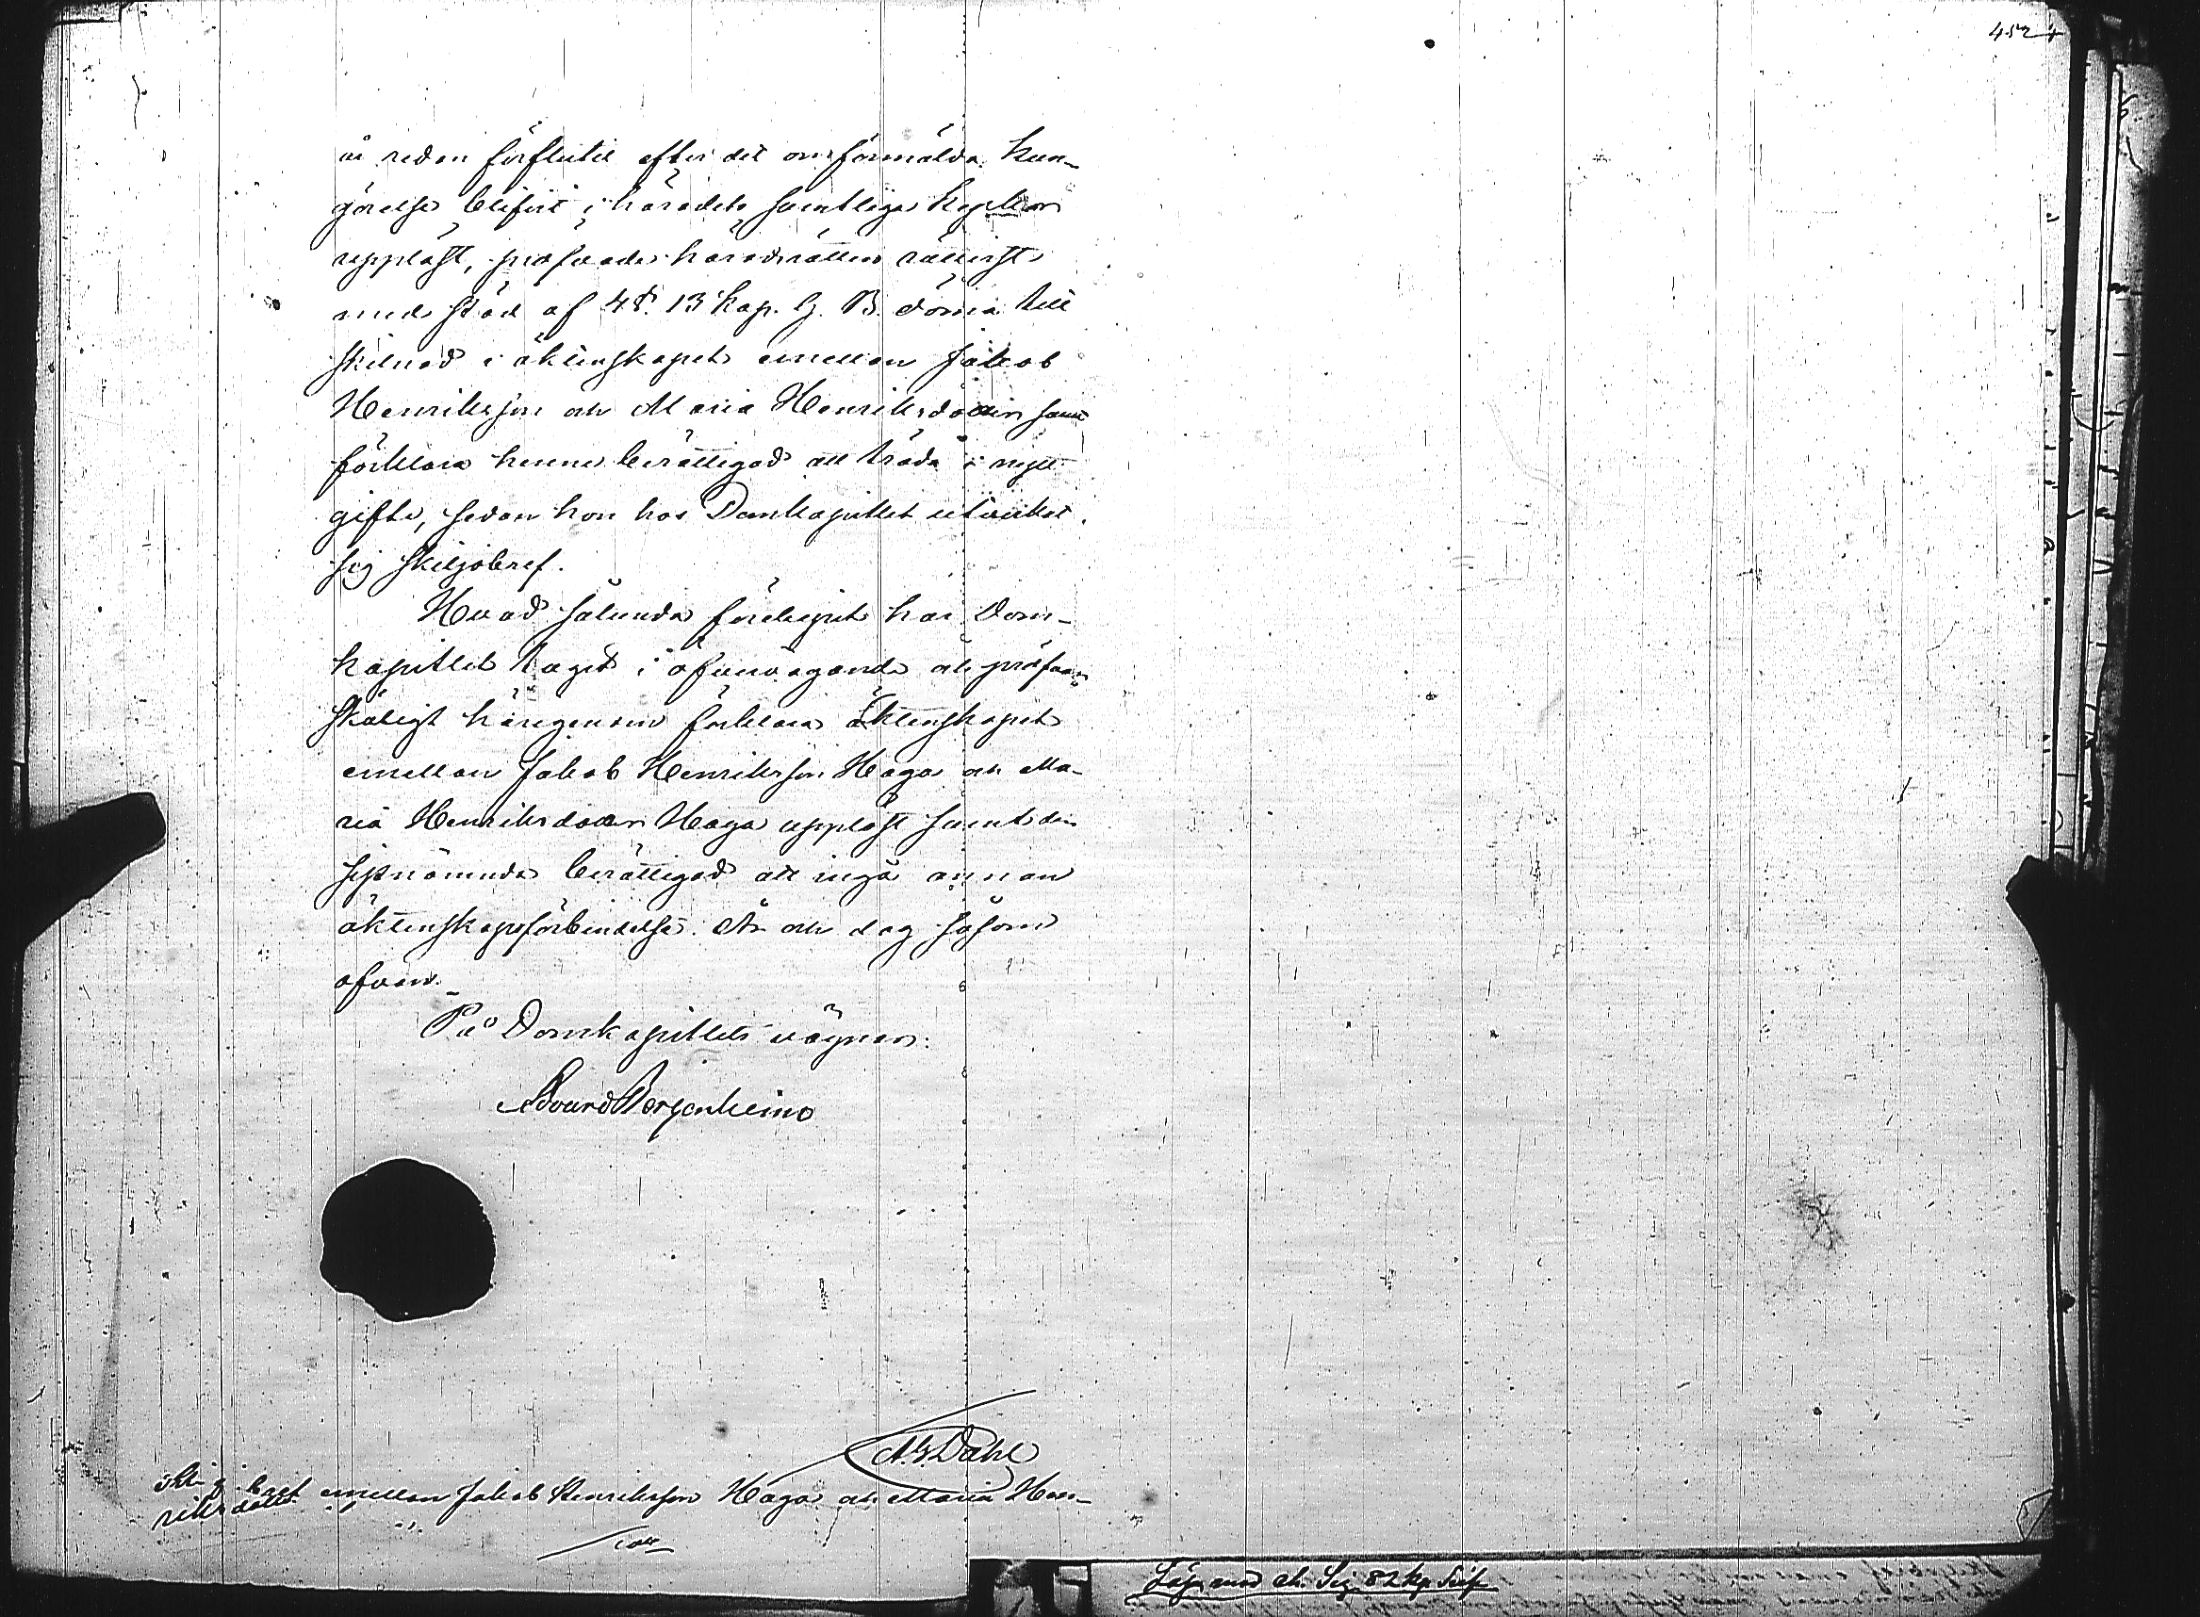 452
år redan förflutit efter det omförmälda kun-
görelse blifvit i häradets samtliga kyrkor
uppläst, pröfvade häradsrätten rättvist
med stöd af 4 §. 13 Kap. G. B. döma till
skilnad i äktenskapet emellan Jakob
Henriksson och Maria Henriksdotter samt
förklara henne berättigad att träda i nytt
gifte, sedan hon hos Domkapitlet utverkat
sig skiljobref.
Hvad sålunda förelupit har Dom-
kapitlet tagit i öfvervägande och pröfvar
skäligt härigenom förklara äktenskapet
emellan Jakob Henriksson Haga och Ma-
ria Henriksdotter Haga upplöst samt den
sistnämnda berättigad att ingå annan
äktenskapsförbindelse. År och dag såsom
ofvan.
På Domkapitlets vägnar:
Edvard Bergenheim
A. G. Dahl
Skiljobref emellan Jakob Henriksson Haga och Maria Hen-
riksdotter